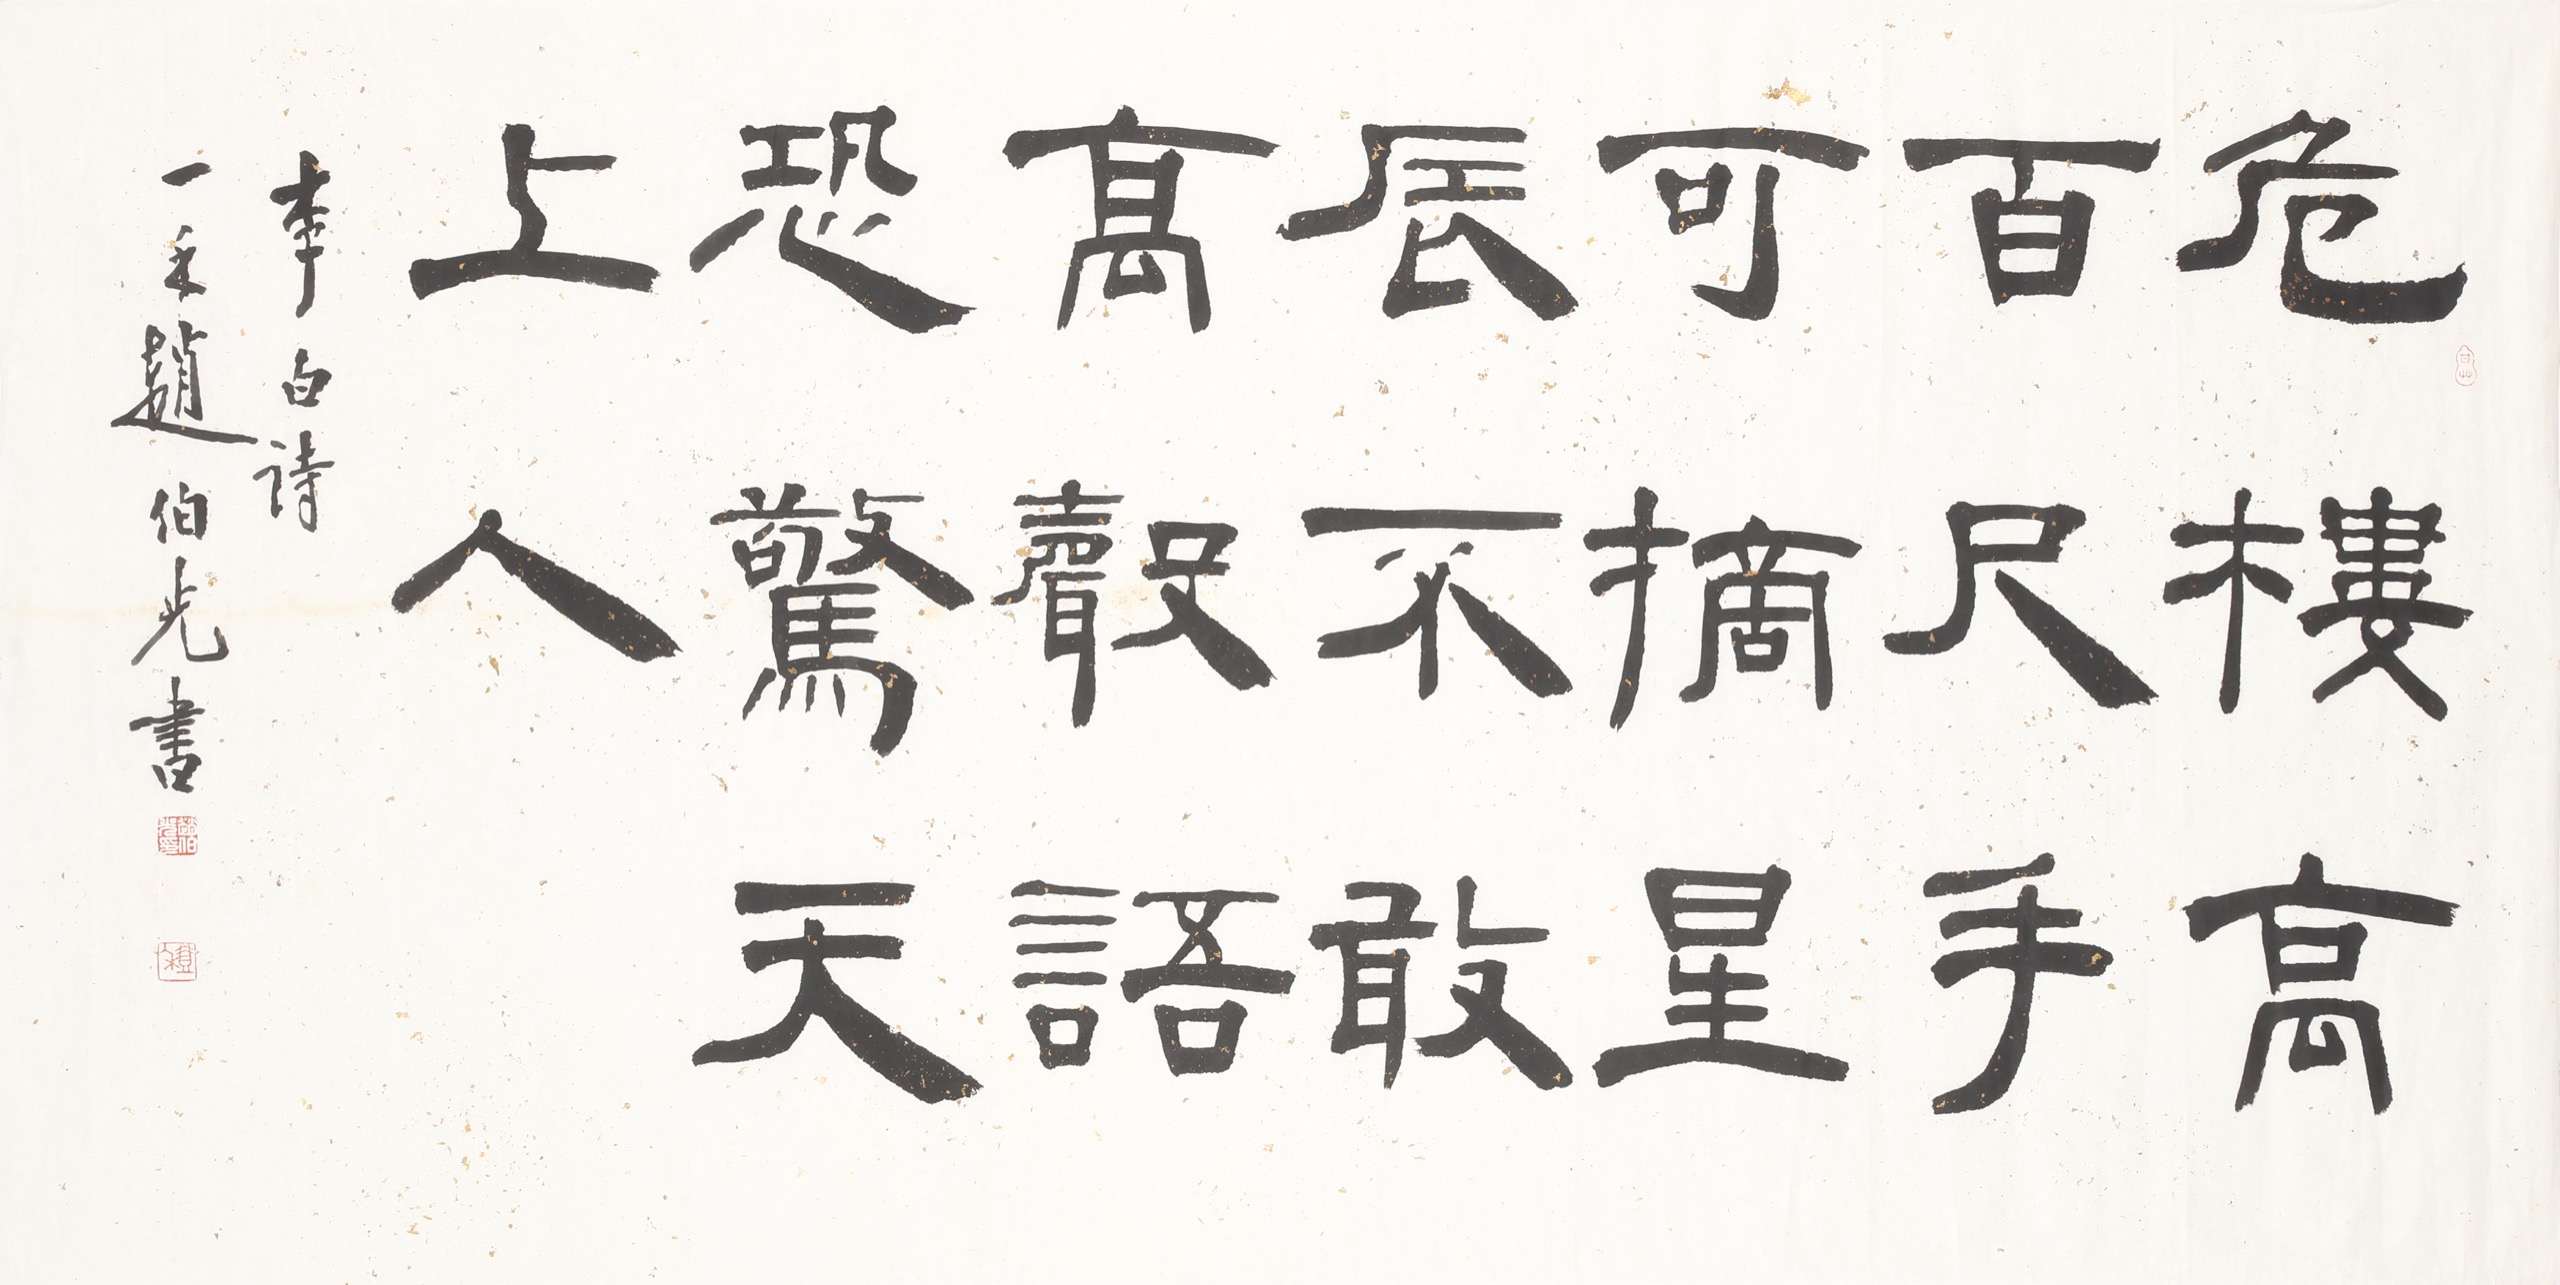 危樓高
百尺手
可摘星
辰不敢
高聲語
恐驚天
上人
李白詩
一禾趙伯光書